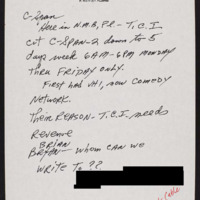 C-Span
Here in N.M.B, P.R. - T.C.I
cut C-SPAN-2 down to 5
days week 6AM-6PM MONDAY
THRU FRIDAY ONLY.
First had VH1, now Comedy
Network.
Their REASON - T.C.I. needs
Revenue
BRIAN
whom can we
WRITE To ??
Cable